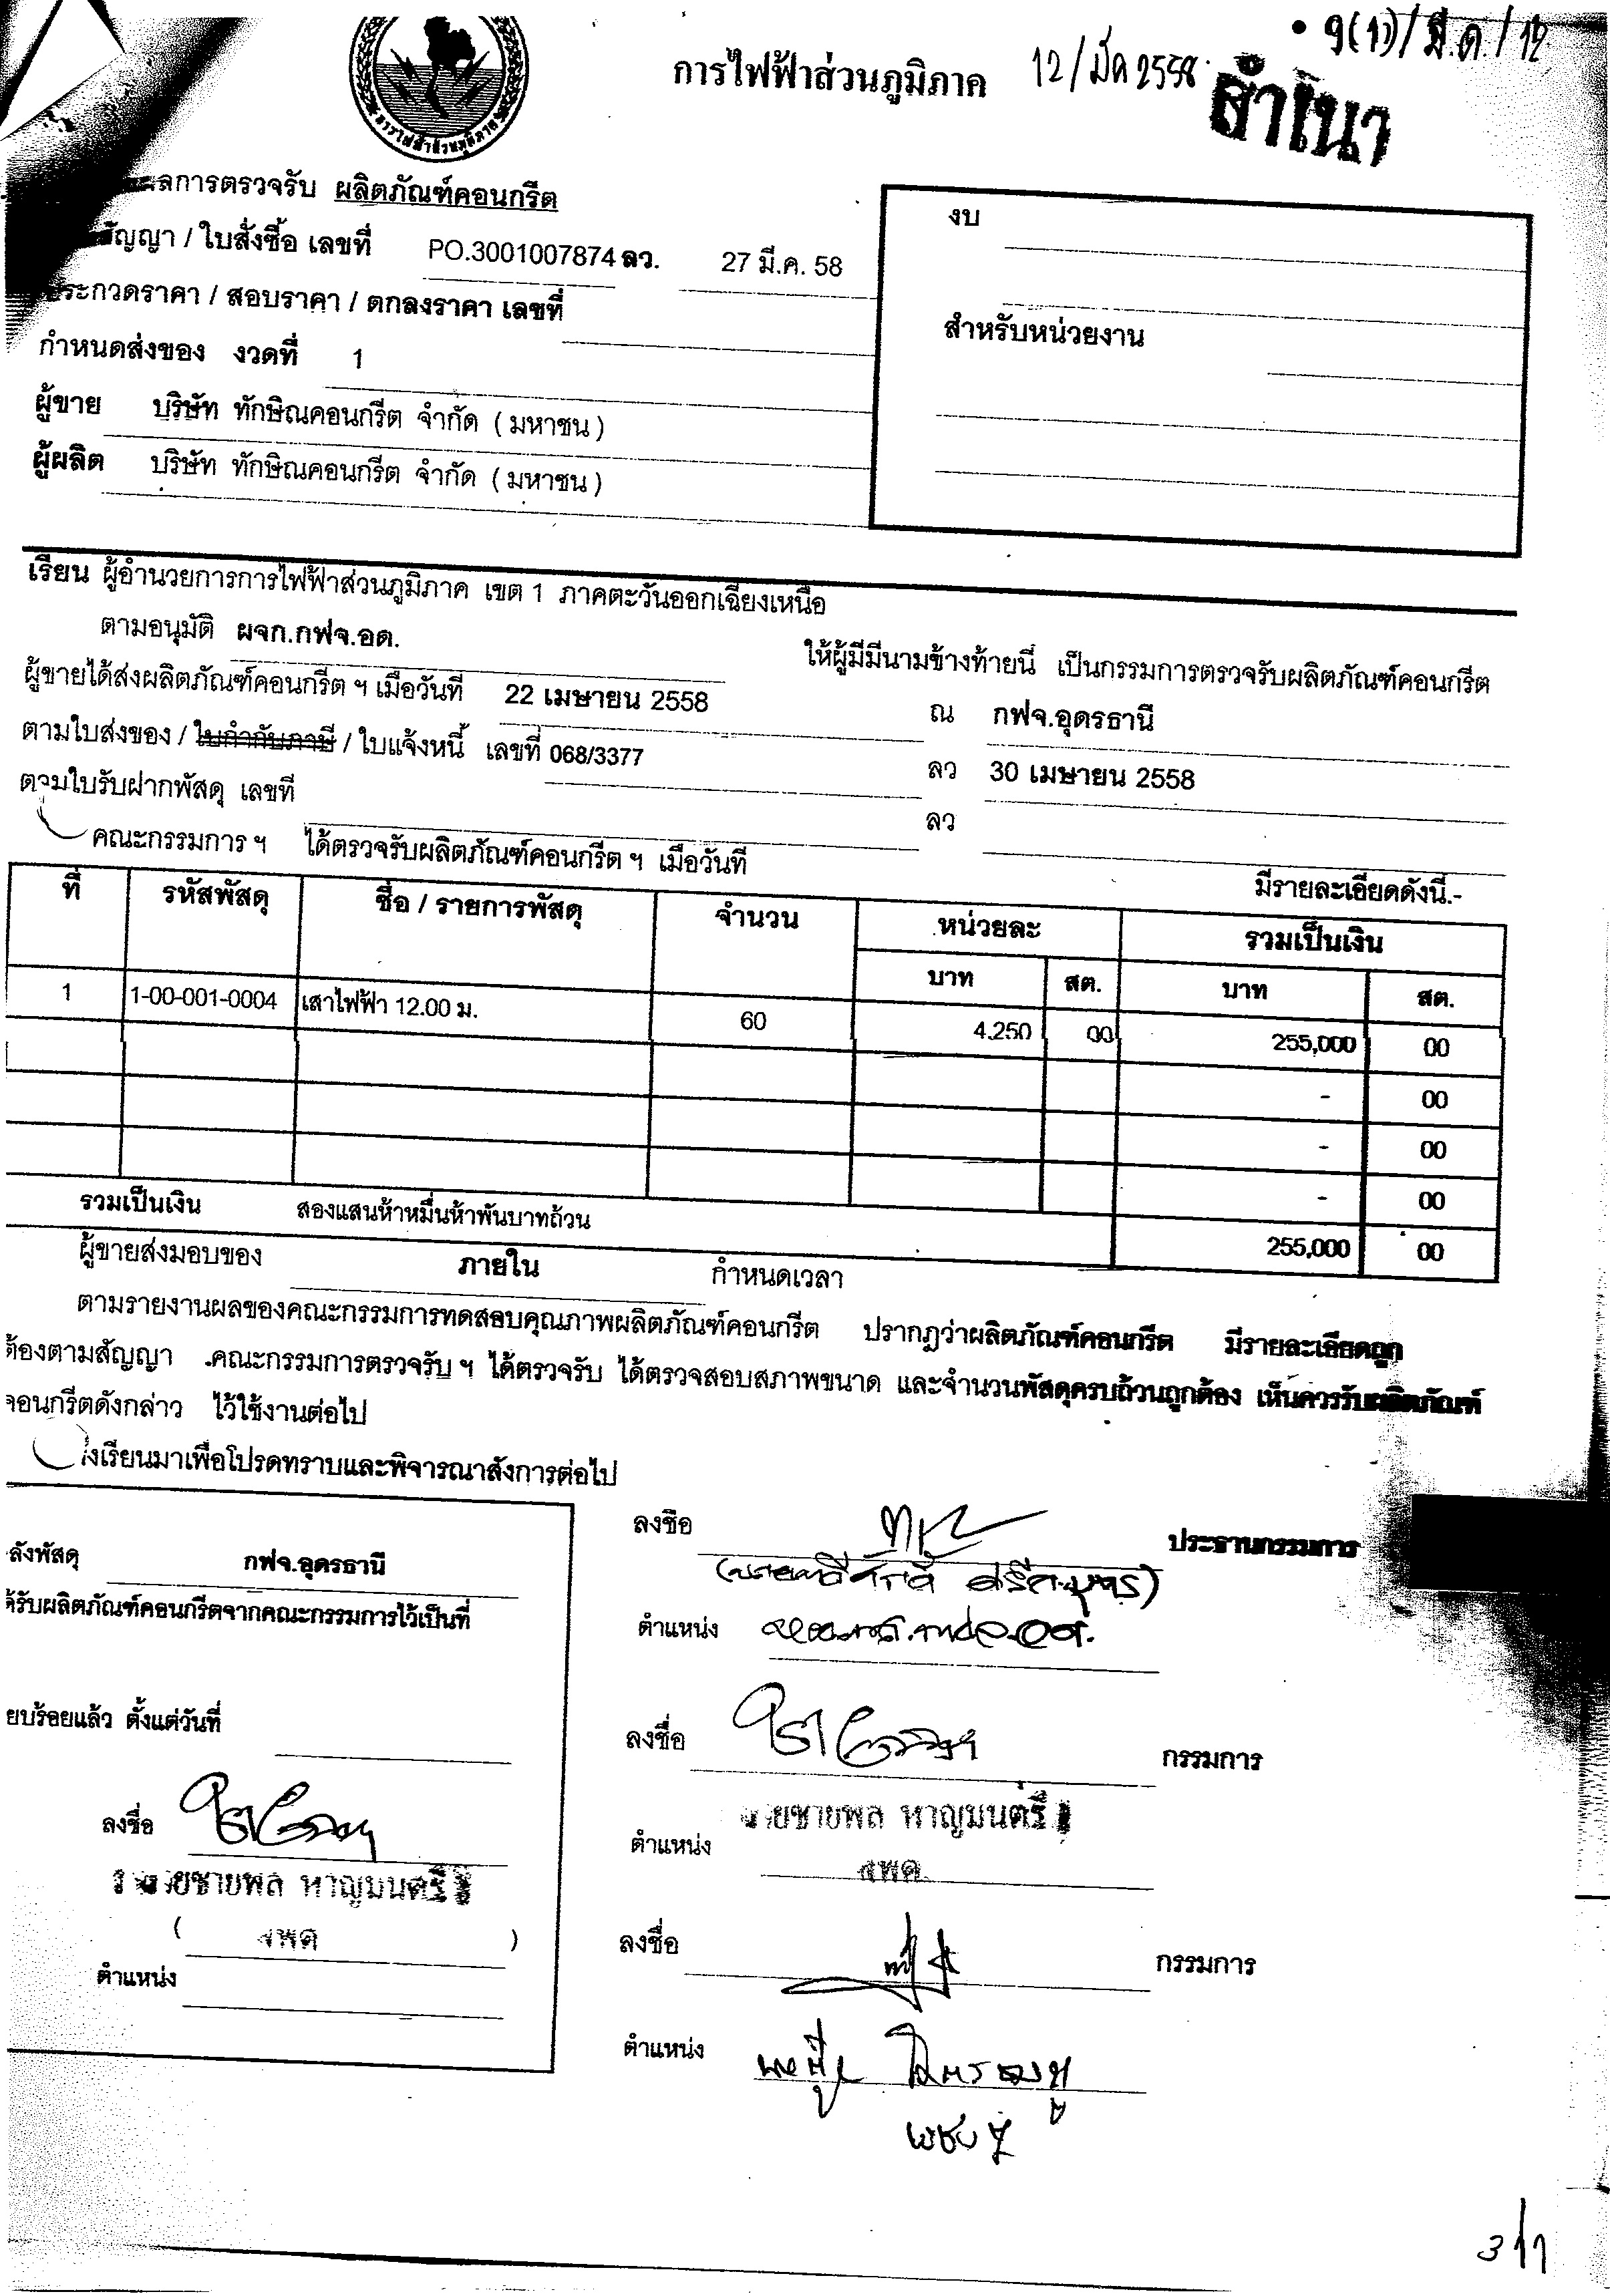 9(1)/มี.ค./12
การไฟฟ้าส่วนภูมิภาค 12/มีค 2558
สำเนา
การไฟฟ้าส่วนภูมิภาค
ผลการตรวจรับ ผลิตภัณฑ์คอนกรีต
สัญญา / ใบสั่งซื้อ เลขที่ PO.3001007874 ลว. 27 มี.ค. 58
ประกวดราคา / สอบราคา / ตกลงราคา เลขที่
กำหนดส่งของ งวดที่ 1
ผู้ขาย บริษัท ทักษิณคอนกรีต จำกัด ( มหาชน )
ผู้ผลิต บริษัท ทักษิณคอนกรีต จำกัด ( มหาชน )
งบ
สำหรับหน่วยงาน
เรียน ผู้อำนวยการการไฟฟ้าส่วนภูมิภาค เขต 1 ภาคตะวันออกเฉียงเหนือ
ตามอนุมัติ ผจก.กฟจ.อด. ให้ผู้มีมีนามข้างท้ายนี้ เป็นกรรมการตรวจรับผลิตภัณฑ์คอนกรีต
ผู้ขายได้ส่งผลิตภัณฑ์คอนกรีต ฯ เมื่อวันที่ 22 เมษายน 2558 ณ กฟจ.อุดรธานี
ตามใบส่งของ / ใบกำกับภาษี / ใบแจ้งหนี้ เลขที่ 068/3377 ลว 30 เมษายน 2558
ตามใบรับฝากพัสดุ เลขที่ ลว
คณะกรรมการ ฯ ได้ตรวจรับผลิตภัณฑ์คอนกรีต ฯ เมื่อวันที่ มีรายละเอียดดังนี้.-
ที่ รหัสพัสดุ ชื่อ / รายการพัสดุ จำนวน หน่วยละ รวมเป็นเงิน
บาท สต. บาท สต.
1 1-00-001-0004 เสาไฟฟ้า 12.00 ม. 60 4,250 00 255,000 00
- 00
- 00
- 00
รวมเป็นเงิน สองแสนห้าหมื่นห้าพันบาทถ้วน 255,000 00
ผู้ขายส่งมอบของ ภายใน กำหนดเวลา
ตามรายงานผลของคณะกรรมการทดสอบคุณภาพผลิตภัณฑ์คอนกรีต ปรากฏว่าผลิตภัณฑ์คอนกรีต มีรายละเอียดถูก
ต้องตามสัญญา คณะกรรมการตรวจรับ ฯ ได้ตรวจรับ ได้ตรวจสอบสภาพขนาด และจำนวนพัสดุครบถ้วนถูกต้อง เห็นควรรับผลิตภัณฑ์
คอนกรีตดังกล่าว ไว้ใช้งานต่อไป
จึงเรียนมาเพื่อโปรดทราบและพิจารณาสั่งการต่อไป
ลังพัสดุ กฟจ.อุดรธานี
ด้รับผลิตภัณฑ์คอนกรีตจากคณะกรรมการไว้เป็นที่
ยบร้อยแล้ว ตั้งแต่วันที่
ลงชื่อ
นายชายพล หาญมนตรี
( )
ตำแหน่ง
ลงชื่อ ประธานกรรมการ
ตำแหน่ง
ลงชื่อ กรรมการ
นายชายพล หาญมนตรี
ตำแหน่ง
ลงชื่อ กรรมการ
ตำแหน่ง